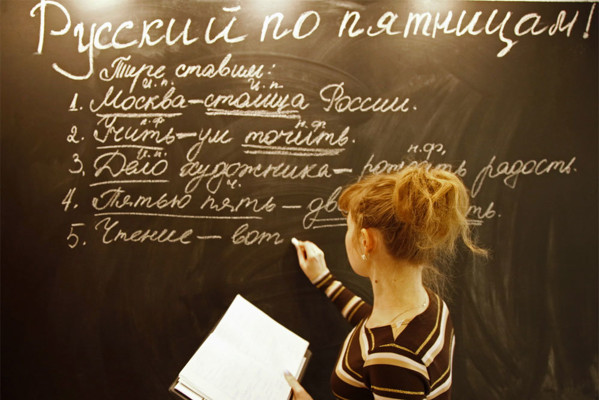 Русский по пятницам!
Тире ставим:
и.п. и.п.
1. Москва – столица России.
н.ф н.ф
2. Учить – ум точить.
и.п. н.ф.
3. Дело художника – рождать радость.
ч.
4. Пятью пять –
5. Чтение – вот